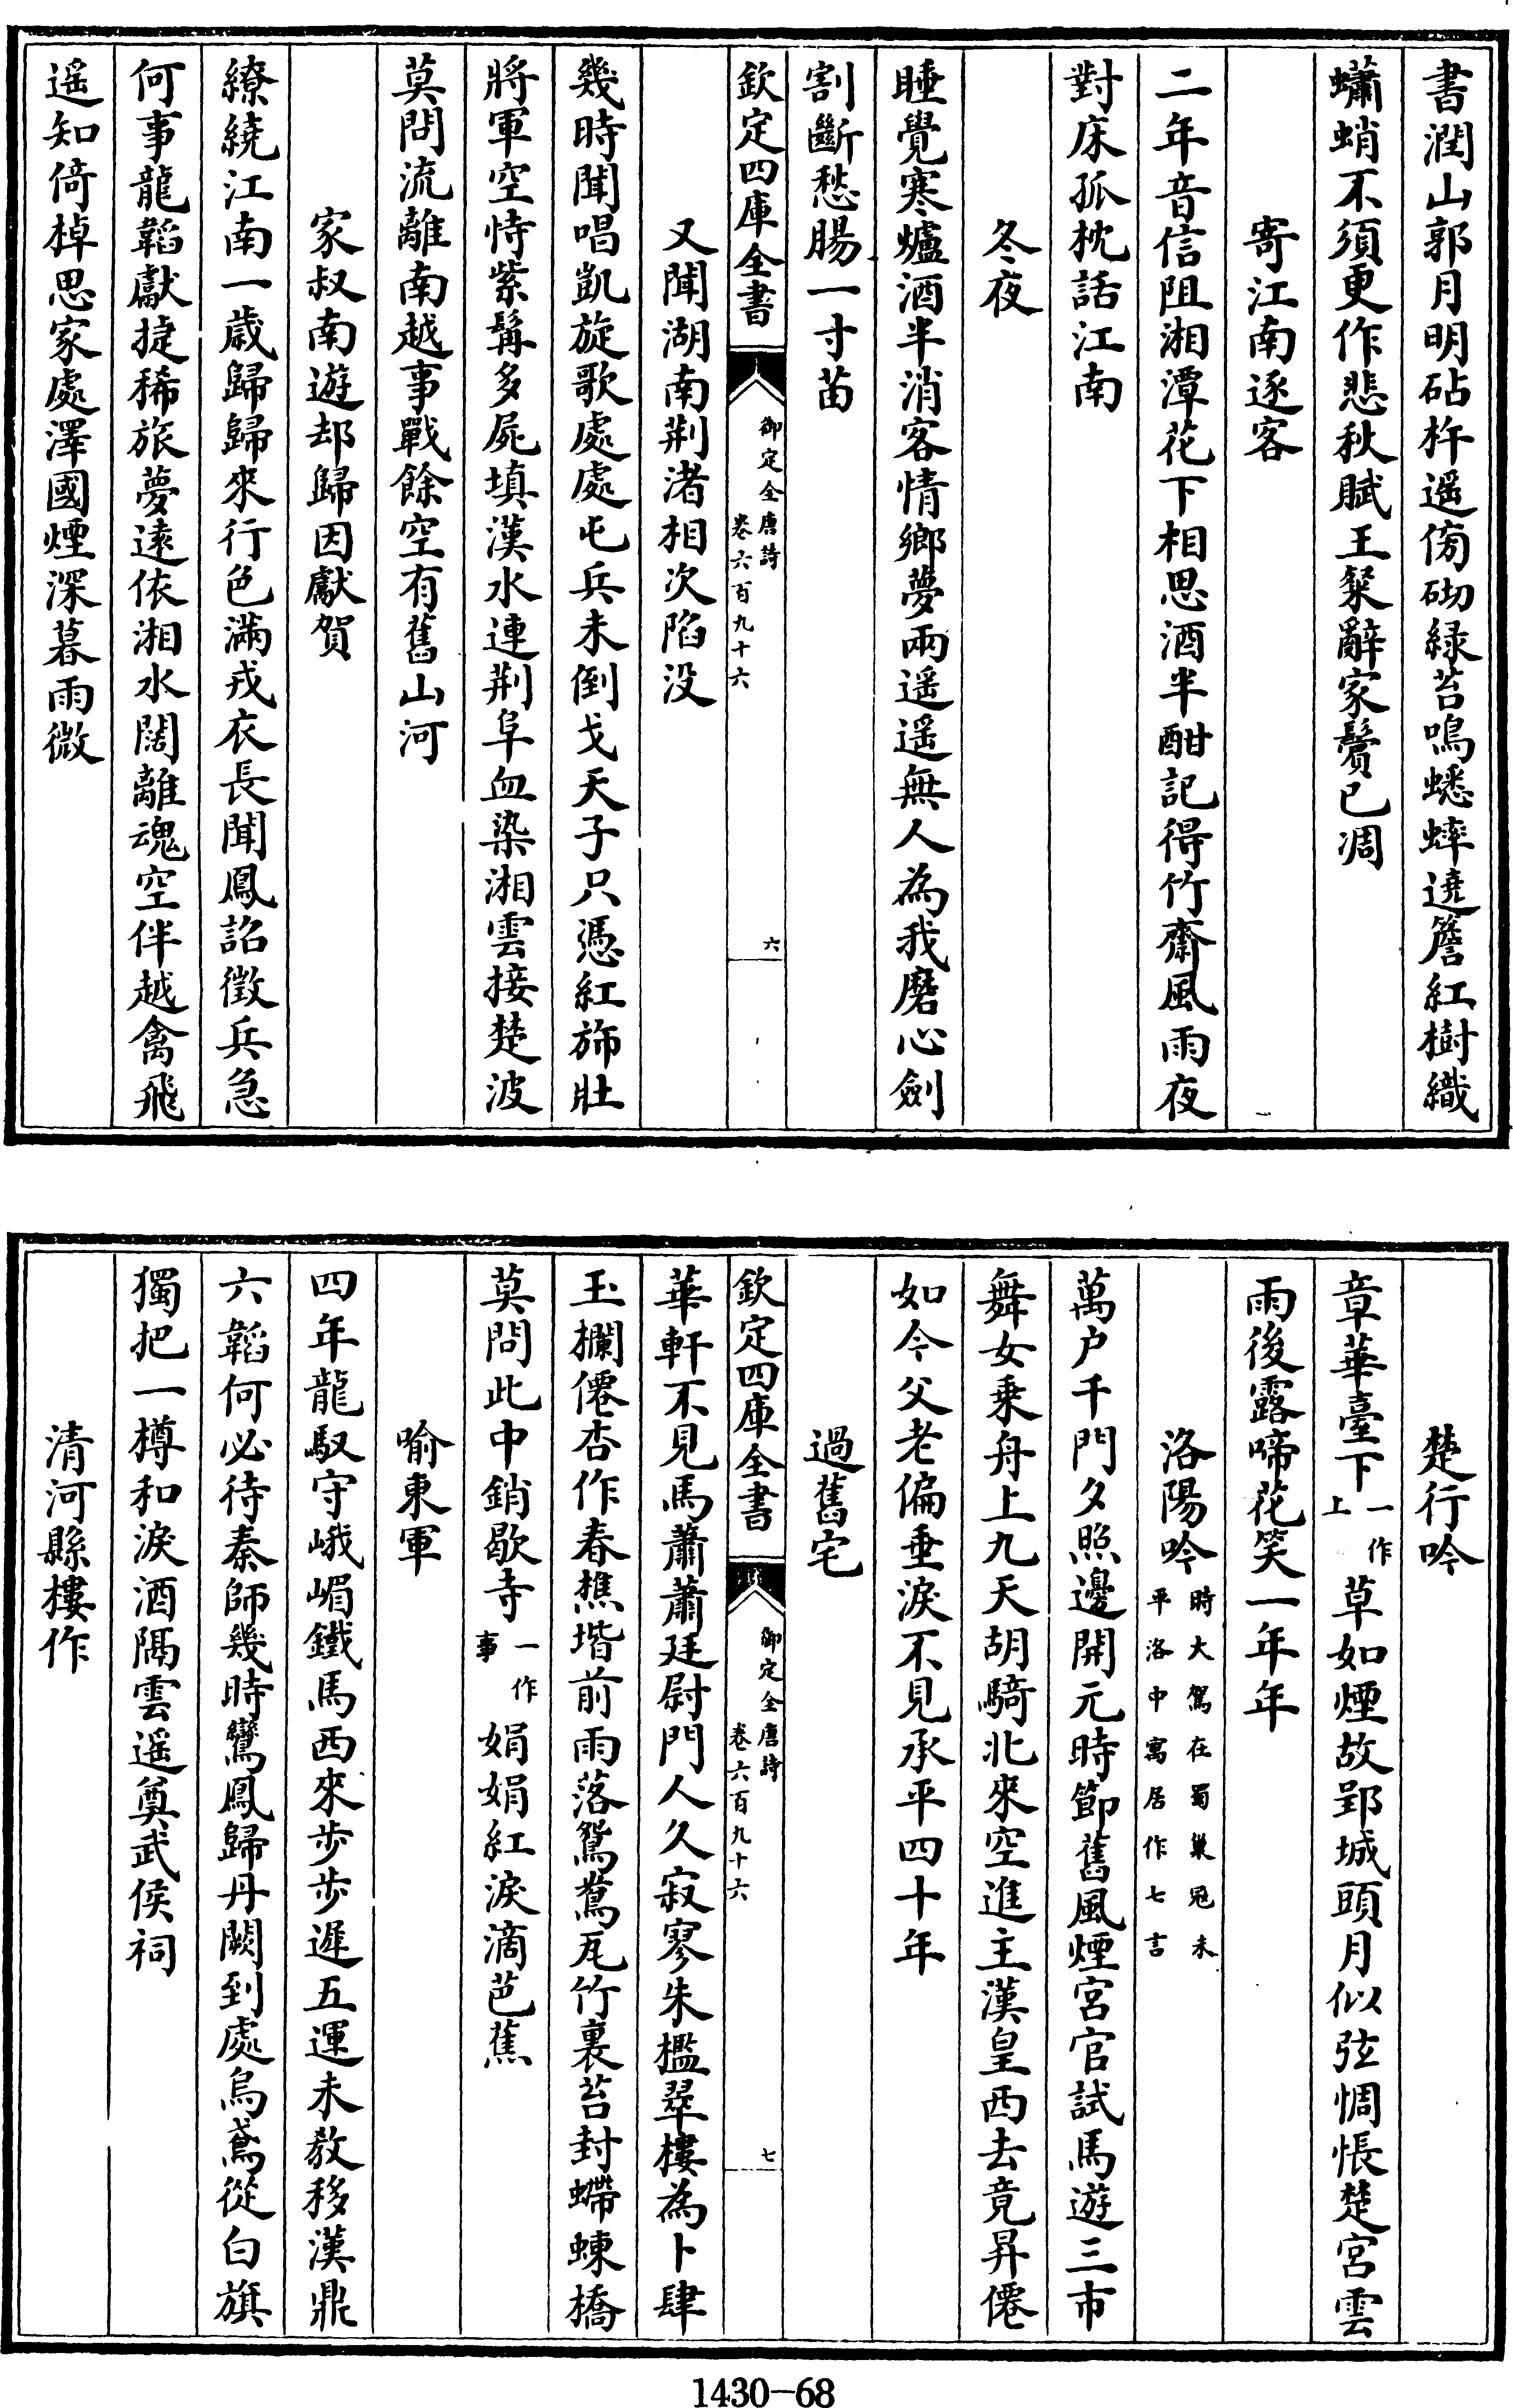 書潤山郭月明砧杵遥傍砌緑苔鳴蟋蟀遶簷紅樹織
蠨蛸不須更作悲秋賦王粲辭家鬢已凋
寄江南逐客
二年音信阻湘潭花下相思酒半酣記得竹齋風雨夜
對床孤枕話江南
冬夜
睡覺寒爐酒半消客情鄉夢兩遥遥無人為我磨心劍
割斷愁腸一寸苗
欽定四庫全書
御定全唐詩
卷六百九十六
六
又聞湖南荆渚相次陷没
幾時聞唱凱旋歌處處屯兵未倒戈天子只憑紅斾壯
將軍空恃紫髯多屍填漢水連荆阜血染湘雲接楚波
莫問流離南越事戰餘空有舊山河
家叔南遊却歸因獻賀
繚繞江南一歲歸歸來行色滿戎衣長聞鳳詔徵兵急
何事龍韜獻捷稀旅夢逺依湘水闊離魂空伴越禽飛
遥知倚棹思家處澤國煙深暮雨微
楚行吟
章華臺下一作上草如煙故郢城頭月似弦惆悵楚宮雲
雨後露啼花笑一年年
洛陽吟時大駕在蜀巢冦未平洛中寓居作七言
萬户千門夕照邊開元時節舊風煙宮官試馬遊三市
舞女乗舟上九天胡騎北來空進主漢皇西去竟昇僊
如今父老偏垂淚不見承平四十年
過舊宅
欽定四庫全書
御定全唐詩
卷六百九十六
七
華軒不見馬蕭蕭廷尉門人久寂寥朱檻翠樓為卜肆
玉欄僊杏作春樵堦前雨落鴛鴦瓦竹裏苔封螮蝀橋
莫問此中銷歇寺一作事娟娟紅淚滴芭蕉
喻東軍
四年龍馭守峨嵋鐵馬西來步步遲五運未教移漢鼎
六韜何必待秦師幾時鸞鳳歸丹闕到處烏鳶從白旗
獨把一樽和淚酒隔雲遥奠武侯祠
清河縣樓作
1430—68